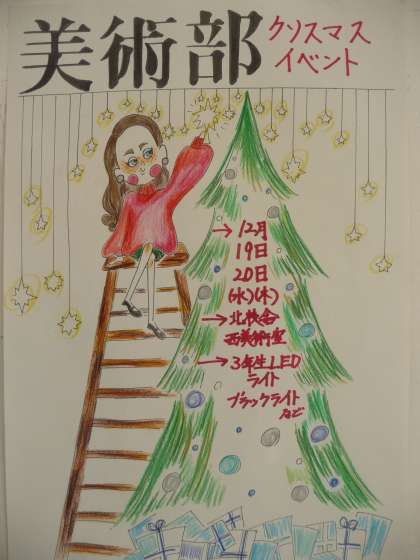 美術部
クリスマス
イベント
→12月
19日
20日
(水)(木)
→北校舎
西美術室
→3年生LED
ライト
ブラックライト
など